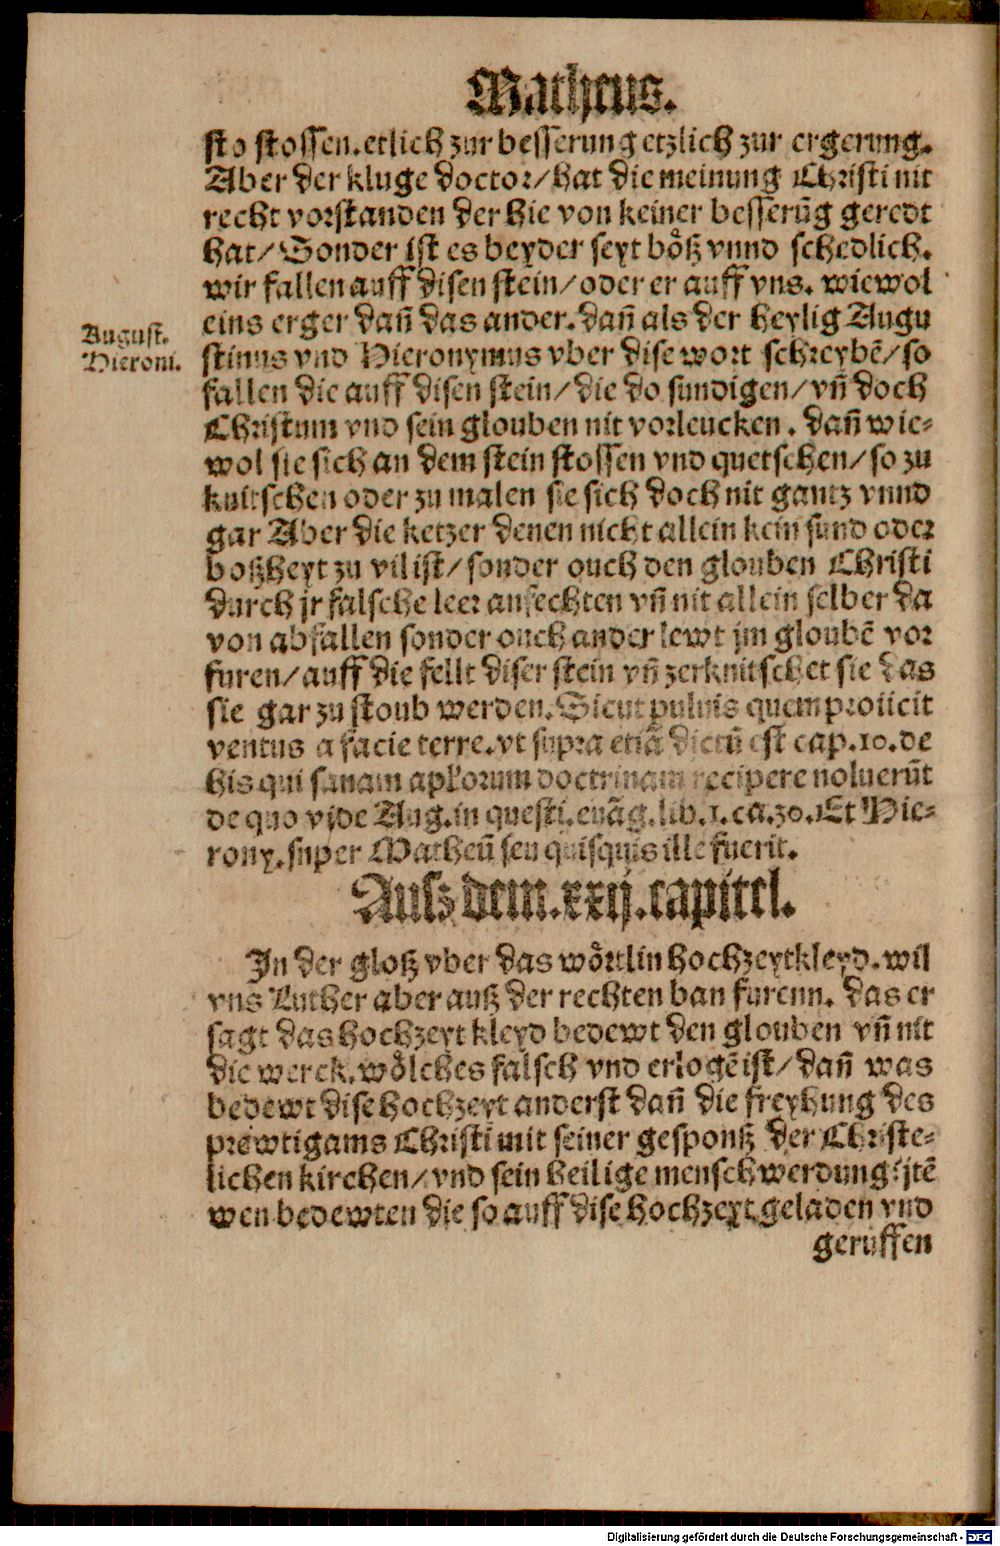 Matheus.
sto stossen. etlich zur besserung etzlich zur ergerung.
Aber der kluge doctor/ hat die meinung Christi nit
recht vorstanden der hie von keiner besserūg geredt
hat/ Sonder ist es beyder seyt böß vnnd schedlich.
wir fallen auff disen stein/ oder er auff vns. wiewol
eins erger dañ das ander. dañ als der heylig Augu
August.
Hieroni.
stinus vnd Hieronymus vber dise wort schreybē/ so
fallen die auff disen stein/ die do sundigen/ vñ doch
Christum vnd sein glouben nit vorleucken. dañ wie⸗
wol sie sich an dem stein stossen vnd quetschen/ so zu
knitschen oder zu malen sie sich doch nit gantz vnnd
gar Aber die ketzer denen nicht allein kein sund oder
boßheyt zu vil ist/ sonder ouch den glouben Christi
durch jr falsche leer anfechten vñ nit allein selber da
von abfallen sonder ouch ander lewt jm gloubē vor
furen/ auff die fellt diser stein vñ zerknitschet sie das
sie gar zu stoub werden. Sicut puluis quem proiicit
ventus a facie terre. vt supra etiā dictū est cap. 10. de
his qui sanam aplorum doctrinam recipere noluerūt
de quo vide Aug. in questi. euāg. lib. 1. ca. 30. Et Hie⸗
rony. super Matheū seu quisquis ille fuerit.
Ausz dem. xxij. capitel.
In der gloß vber das wörtlin hochzeytkleyd. wil
vns Luther aber auß der rechten ban furenn. das er
sagt das hochzeyt kleyd bedewt den glouben vñ nit
die werck. wölches falsch vnd erlogē ist/ dañ was
bedewt dise hochzeyt anderst dañ die freyhung des
prewtigams Christi mit seiner gesponß der Christe⸗
lichen kirchen/ vnd sein heilige menschwerdung? jtē
wen bedewten die so auff dise hochzeyt geladen vnd
geruffen
Digitalisierung gefördert durch die Deutsche Forschungsgemeinschaft - DFG